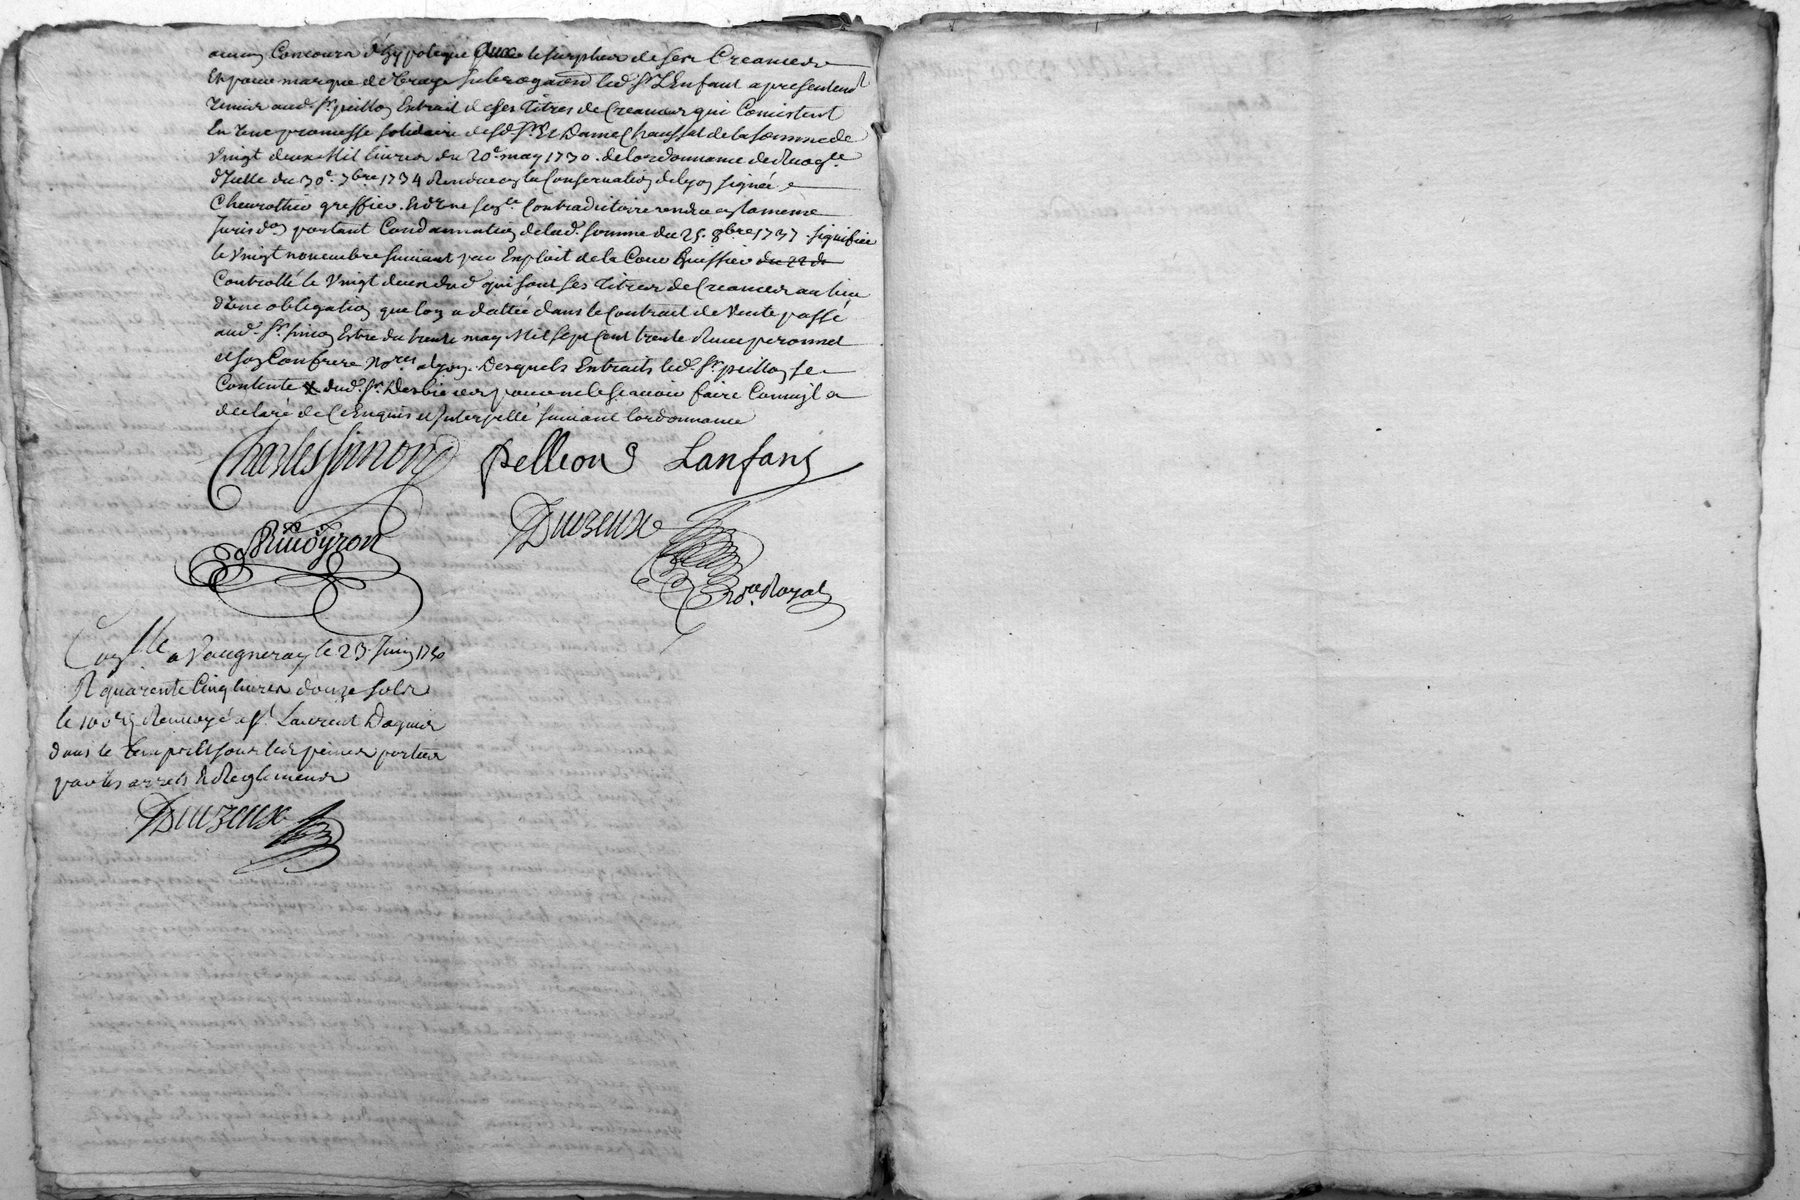 aucun Concours d'hypoteque avec le surplus de ses Creances
Et pour marque de lad. subrogaon led. Sr. L'Enfant a presentemt
remis aud. Sr. pellion Extrait de ses titres de Creances qui Consistent
En Une promesse solidaire desd. Sr. Et Dame Chaussat de la somme de
Vingt deux Mil livres du 20e. may 1730. de l'ordonnance de
d'Icelle du 30e. 7bre 1734 Rendue en la Conservation de lyon signée
greffier. Et d'Une Contradictoire rendue en la meme
Jurison portant Condamnation de lad. somme du 25. 8bre 1737. signifiée
le Vingt novembre suivant par Exploit de la Cour huissier du 22 d
Controllé le Vingt deux dud. qui sont ses titres de Creances au lieu
d'Une obligation que lon a dattée dans le Contrait de Vente passé
aud. Sr. simon Estre du trente may Mil sept Cent trente Reçue peronnet
et son Confrere Nores. a lyon. Desquels Extraits led. Sr. pellion se
Contente dud. Sr. pour ne le scavoir faire Comme il a
declaré de ce Enquis et Interpellé suivant l'ordonnance
Charles simon pellion Lanfant
Rivoyron Duzeux
Nore. Royal
Conlle a Vaugneray le 23. Juin 1740
R quarente Cinq livres douze sols
le 100e. Renvoyé a St. Laurent Dagnier
dans le tempts Et sous les peines portées
par les arrets Et Reglements
Duzeux